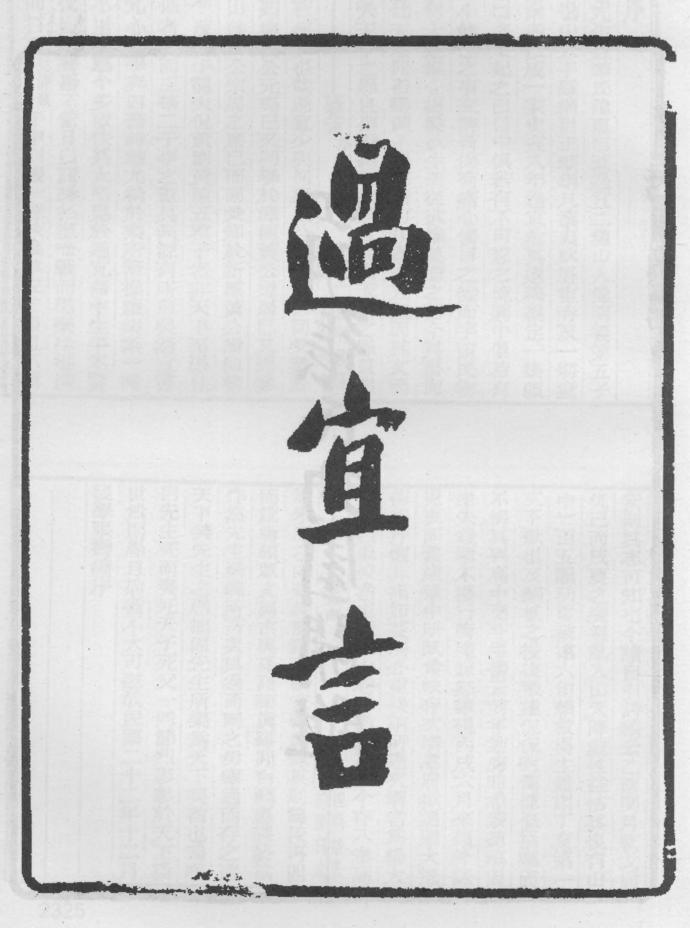 過宜言